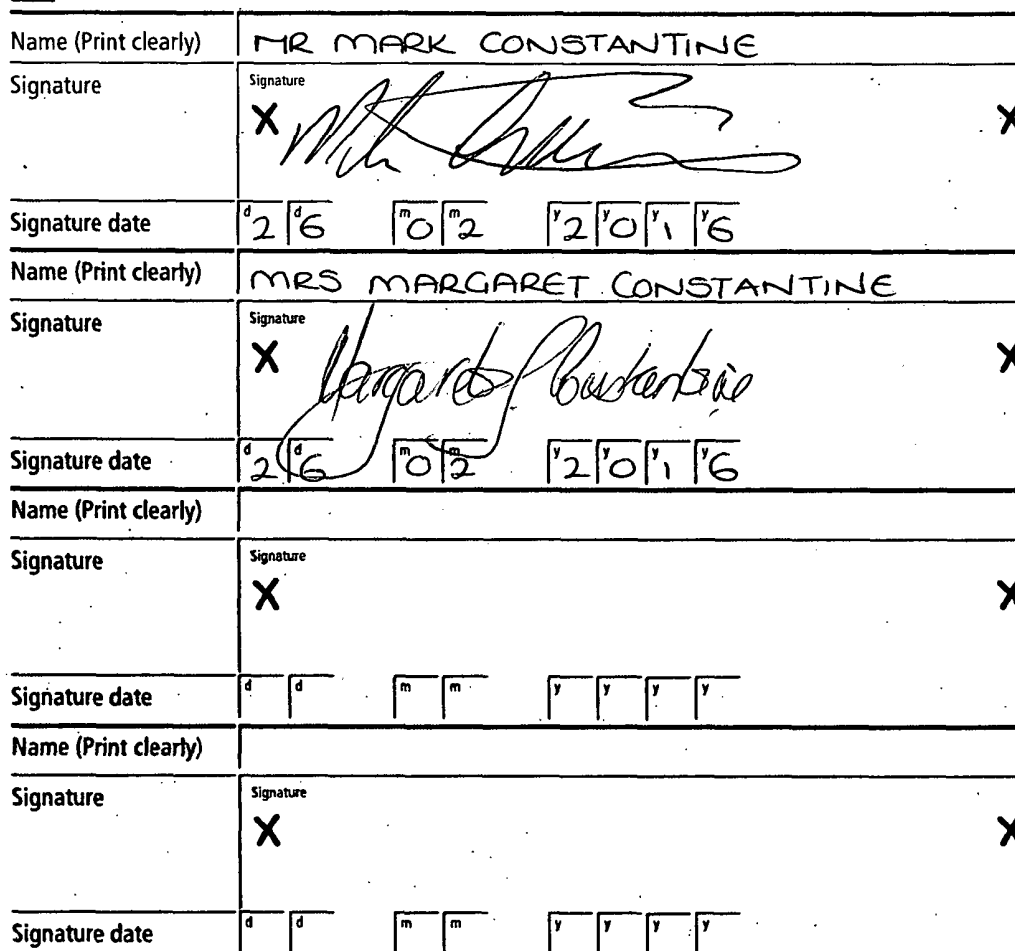 Name (Print clearly) MR MARK CONSTANTINE
Signature Signature
X X
Signature date d2 d6 m0 m2 y2 y0 y1 y6
Name (Print clearly) MRS MARGARET CONSTANTINE
Signature Signature
X Margaret J Constantine X
Signature date d2 d6 m0 m2 y2 y0 y1 y6
Name (Print clearly)
Signature Signature
X X
Signature date d d m m y y y y
Name (Print clearly)
Signature Signature
X X
Signature date d d m m y y y y